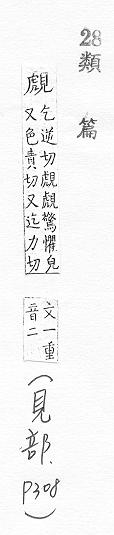 28類
篇
覤
乞逆切覤覤驚懼皃
又色責切又迄力切
文一重
音二
(見部.
P308)